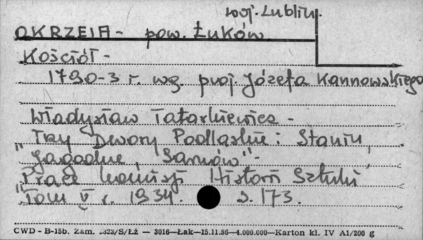 woj. Lublin.
OKRZEJA - pow. Łuków.
Kościół -
1790-3 r. wg. proj. Józefa Kannowskiego
Władysław Tatarkiewicz -
"Trzy Dwory Podlaskie: Stanin,
Jagodne, Sarnów" -
Prace Komisji Historii Sztuki
Tom V r. 1934. s. 173.
CWD - B-15b. Zam. /S/Łż — 3016—Łak—15.11.86—4.000.000—Karton kl. IV A1/200 g